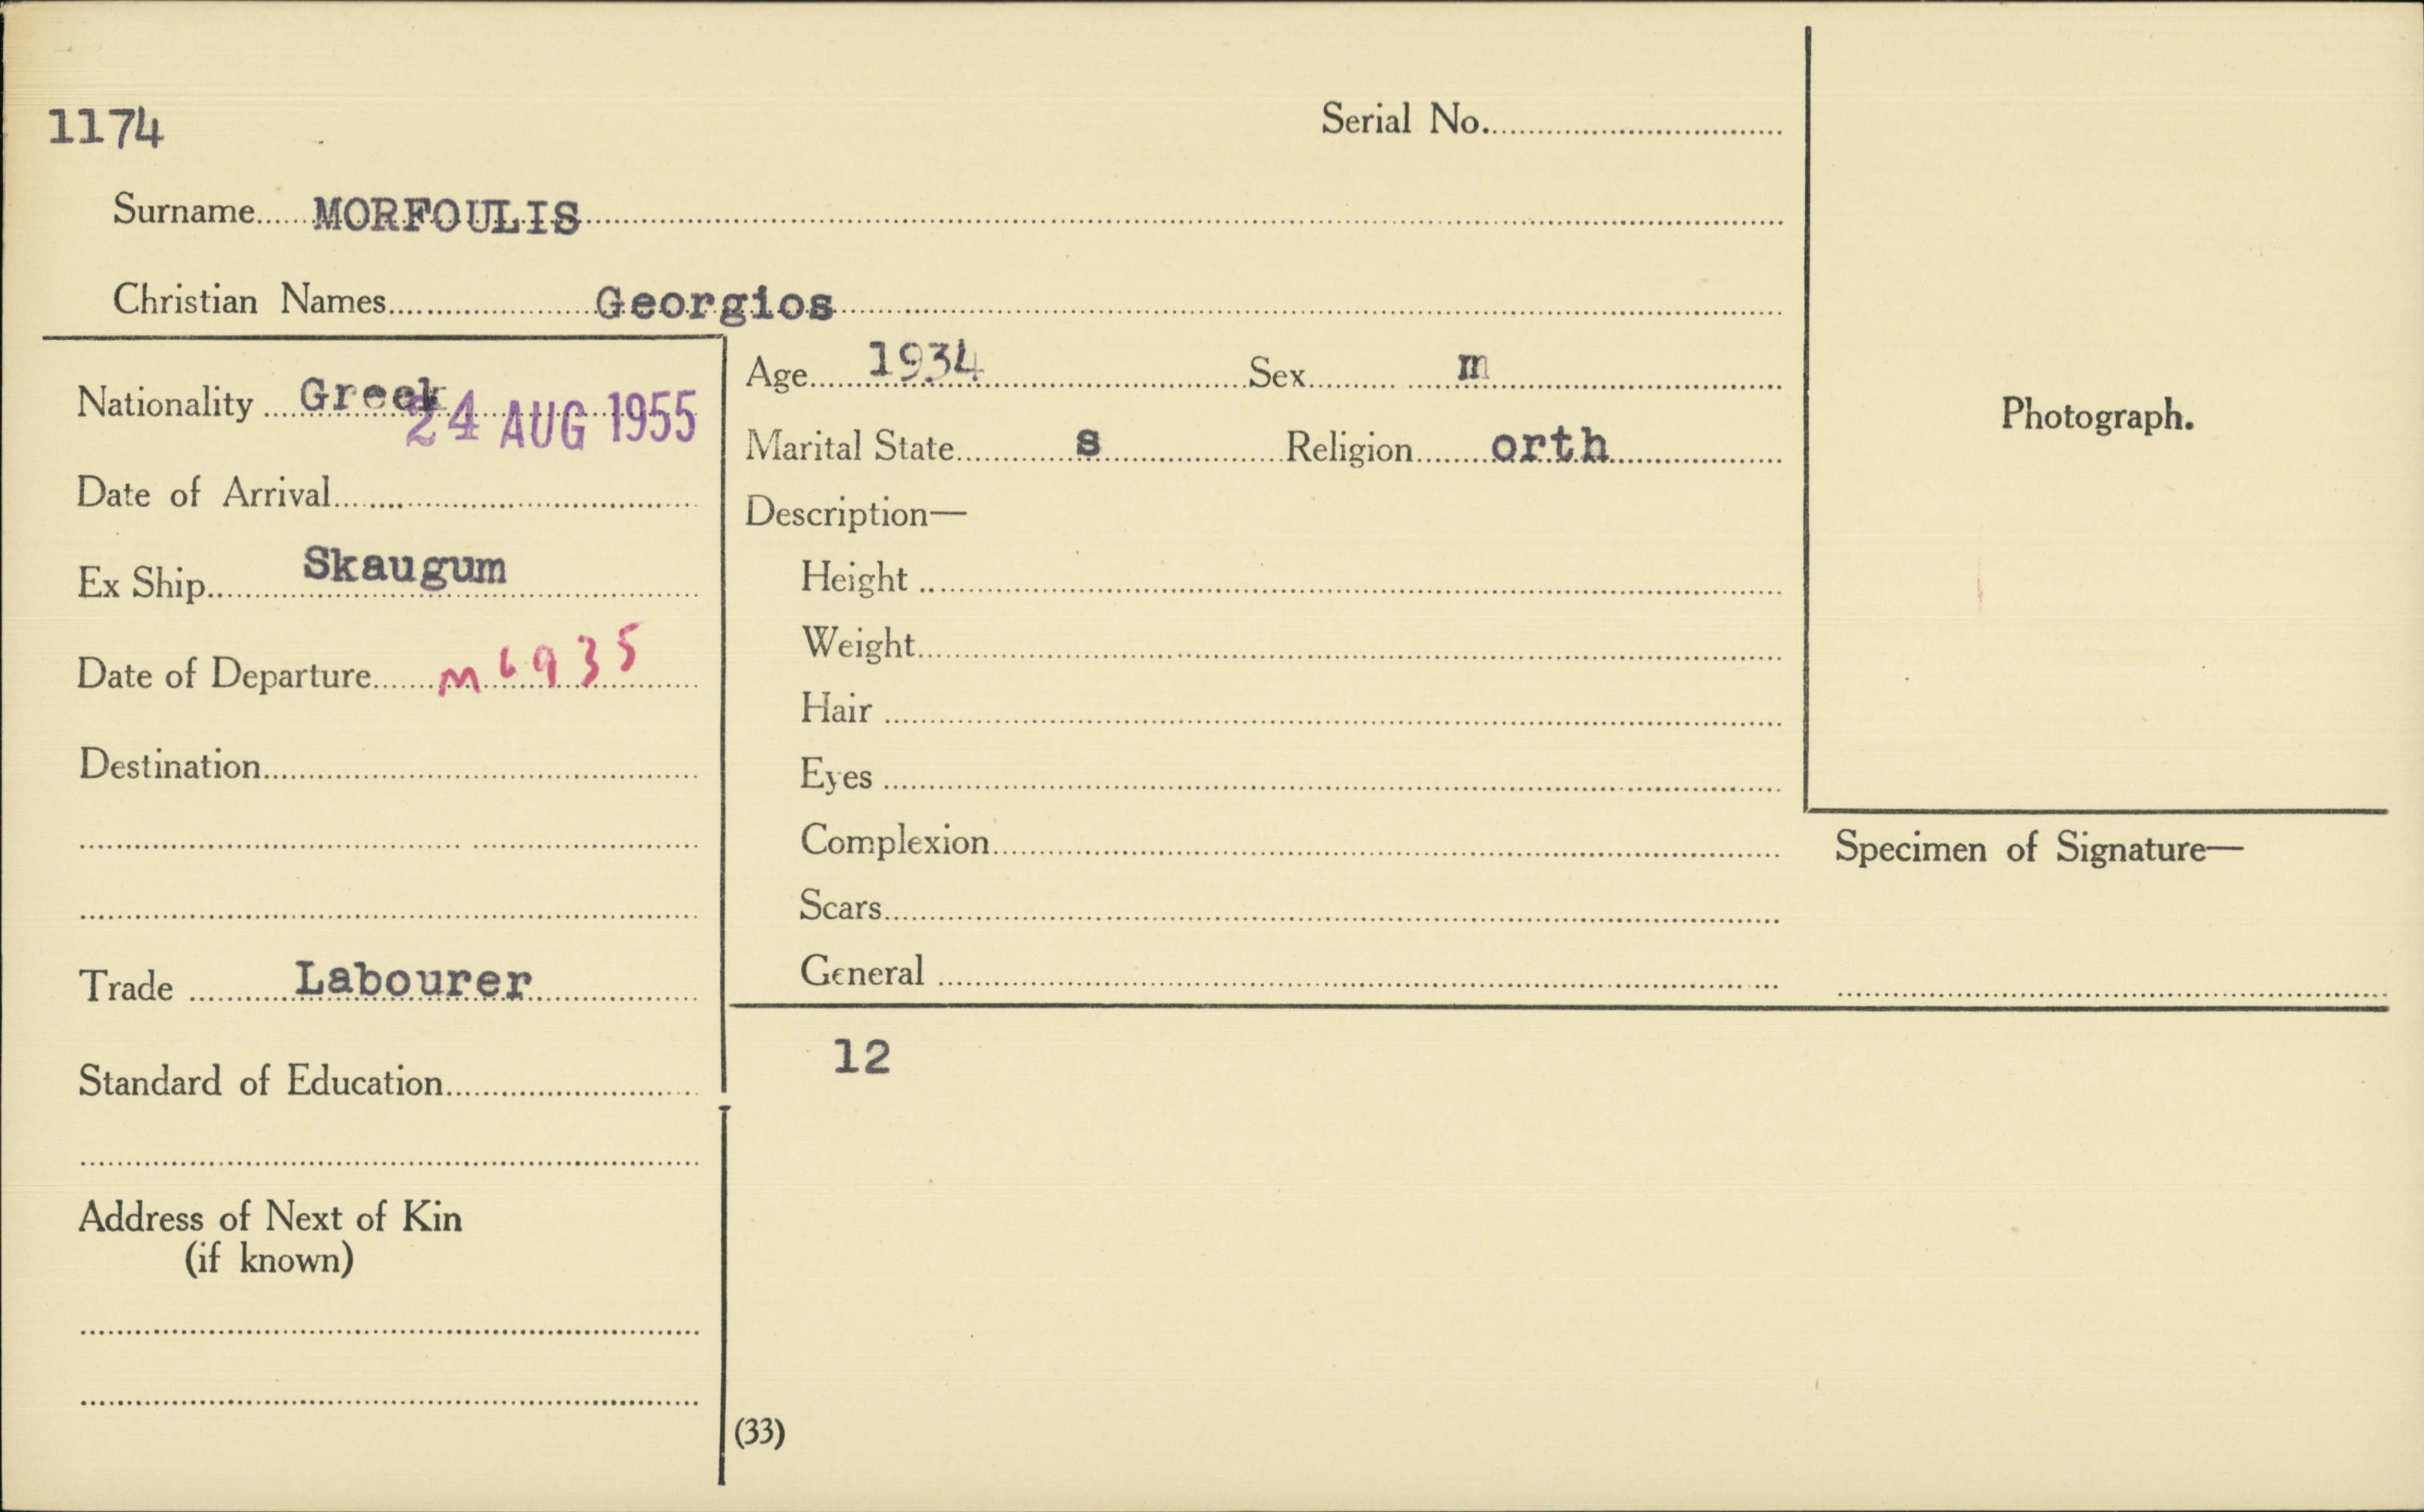 1174
Serial No.
Surname MORFOULIS
Christian Names Georgios
Nationality Greek
24 AUG 1955
Date of Arrival
Ex Ship Skaugum
Date of Departure m 6935
Destination
Trade Labourer
Standard of Education
Address of Next of Kin
(if known)
Age 1934 Sex m
Marital State s Religion orth
Description—
Height
Weight
Hair
Eyes
Complexion
Scars
General
12
(33)
Photograph.
Specimen of Signature—